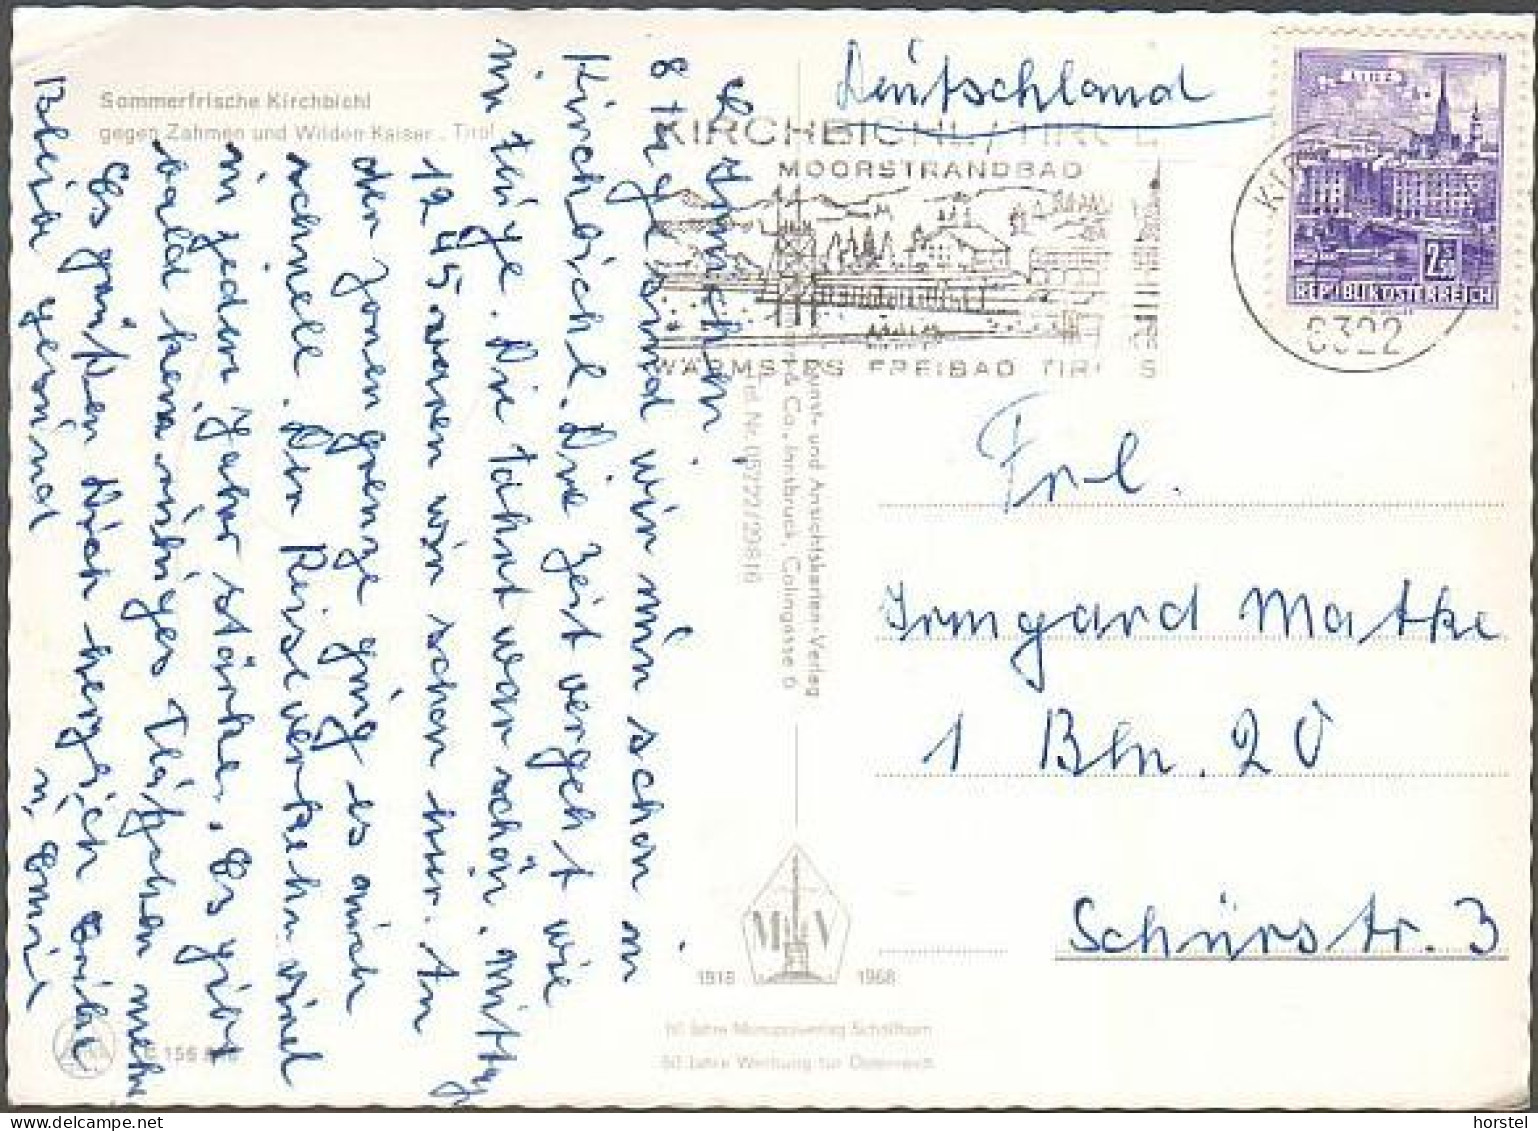 Sommerfrische Kirchbichl
gegen Zahmen und Wilden Kaiser, Tirol
Deutschland
KIRCHBICHL/TIROL
MOORSTRANDBAD
WÄRMSTES FREIBAD TIROLS
LINZ
2.50
REPUBLIK ÖSTERREICH
6322
Frl.
Irmgard Matke
1 Bln. 20
Schürstr. 3
8 Tage sind wir nun schon in
Kirchbichl. Die Zeit vergeht wie
im Fluge. Die Fahrt war schön, mittags
12 45 waren wir schon hier. An
der Zonengrenze ging es auch
schnell. Der Reiseverkehr wird
in jedem Jahr stärker. Es gibt
bald kein ruhiges Plätzchen mehr
Es grüßen Dich herzlich
Kunst- und Ansichtskarten-Verlag
& Co., Innsbruck, Colingasse 6
Tel. Nr. 05222/29816
M V
1918 1968
50 Jahre Monopolverlag Schöllhorn
50 Jahre Werbung für Österreich
horstel